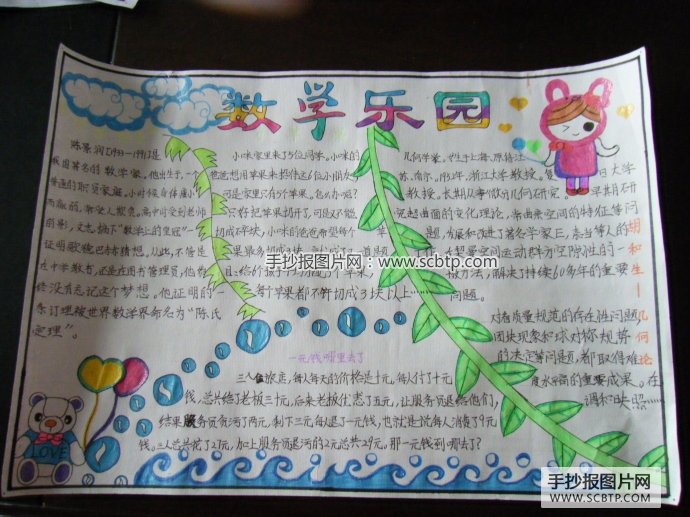 数学乐园
陈景润[1933—1996]是
我国著名的数学家。他出生于一个
普通的职员家庭。小时候身体瘦小
而羸弱,常受人欺负。高中时受到老师
的影,立志摘下“数学上的皇冠”—
证明歌德巴赫猜想。从此,不管是
大中学教书,还是在图书管理员,他都
经没有忘记这个梦想。他证明的一
条订理被世界数洋界命名为“陈氏
定理”。
小咪家里来了5位同学。小咪的
爸爸想用苹果来招待这6位小朋友
可是家里只有5个苹果。怎么办呢?
只好把苹果切开了,可是又不能
切成碎块,小咪的爸爸希望每个
苹果最多切成3块。
每个苹果都不许切成3块以上……
胡和生—几何论
几何学家。
日大学
教授。长期从事微分几何研究。早期研
究超曲面的文化理论,常曲率空间的特征等问
题。
解决了持续60多年的重要
问题。
对有质量规范的存在胜问题,
团块现象和球对称规势
的决定等问题,都取得难
度水平高的重要成果。在
调和映照……
一元钱哪里去了
三人住旅店,每人每天的价格是十元,每人付了十元
钱,总共给了老板三十元,后来老板优惠了五元,让服务员退给他们,
结果服务员贪污了两元,剩下三元每人退了一元钱,也就是说每人消费了9元
钱。三人总共花了27元,加上服务员退污的2元总共29元。那一元钱到哪去了?
LOVE
手抄报图片网:www.scbtp.com
手抄报图片网
WWW.SCBTP.COM